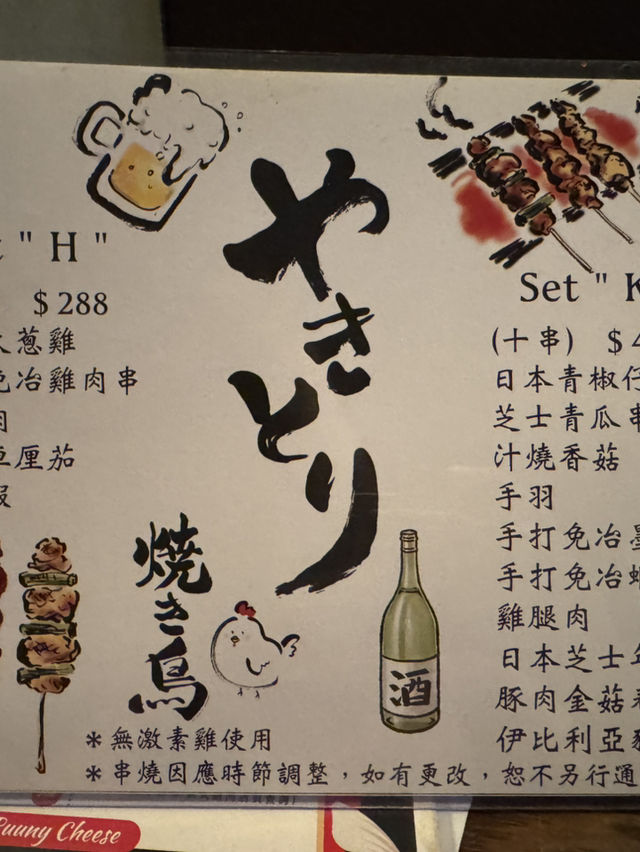 " H "
$ 288
葱雞
免冶雞肉串
肉
厘茄
やきとり
焼き鳥
酒
Set " K
(十串) $ 4
日本青椒仔
芝士青瓜串
汁燒香菇
手羽
手打免冶墨
手打免冶
雞腿肉
日本芝士
豚肉金菇
伊比利亞
*無激素雞使用
*串燒因應時節調整，如有更改，恕不另行通
Cheese